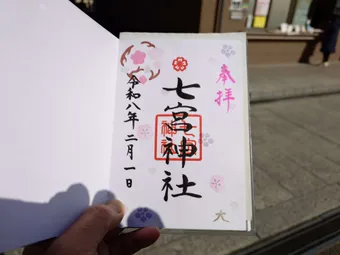 奉拝
七宮神社
令和八年二月一日